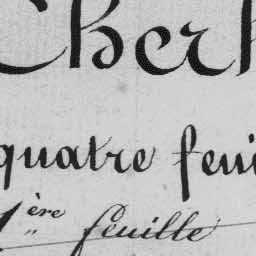 Cher
quatre feui
1ère feuille